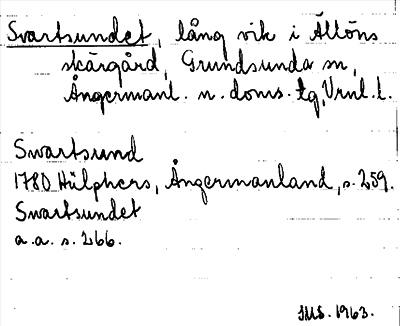 Svartsundet, lång vik i Ältöns
skärgård, Grundsunda sn,
Ångermanl. n. doms. tg, Vrnl. l.
Svartsund
1780 Hülphers, Ångermanland, s. 259.
Svartsundet
a.a. s. 266.
IMS. 1963.